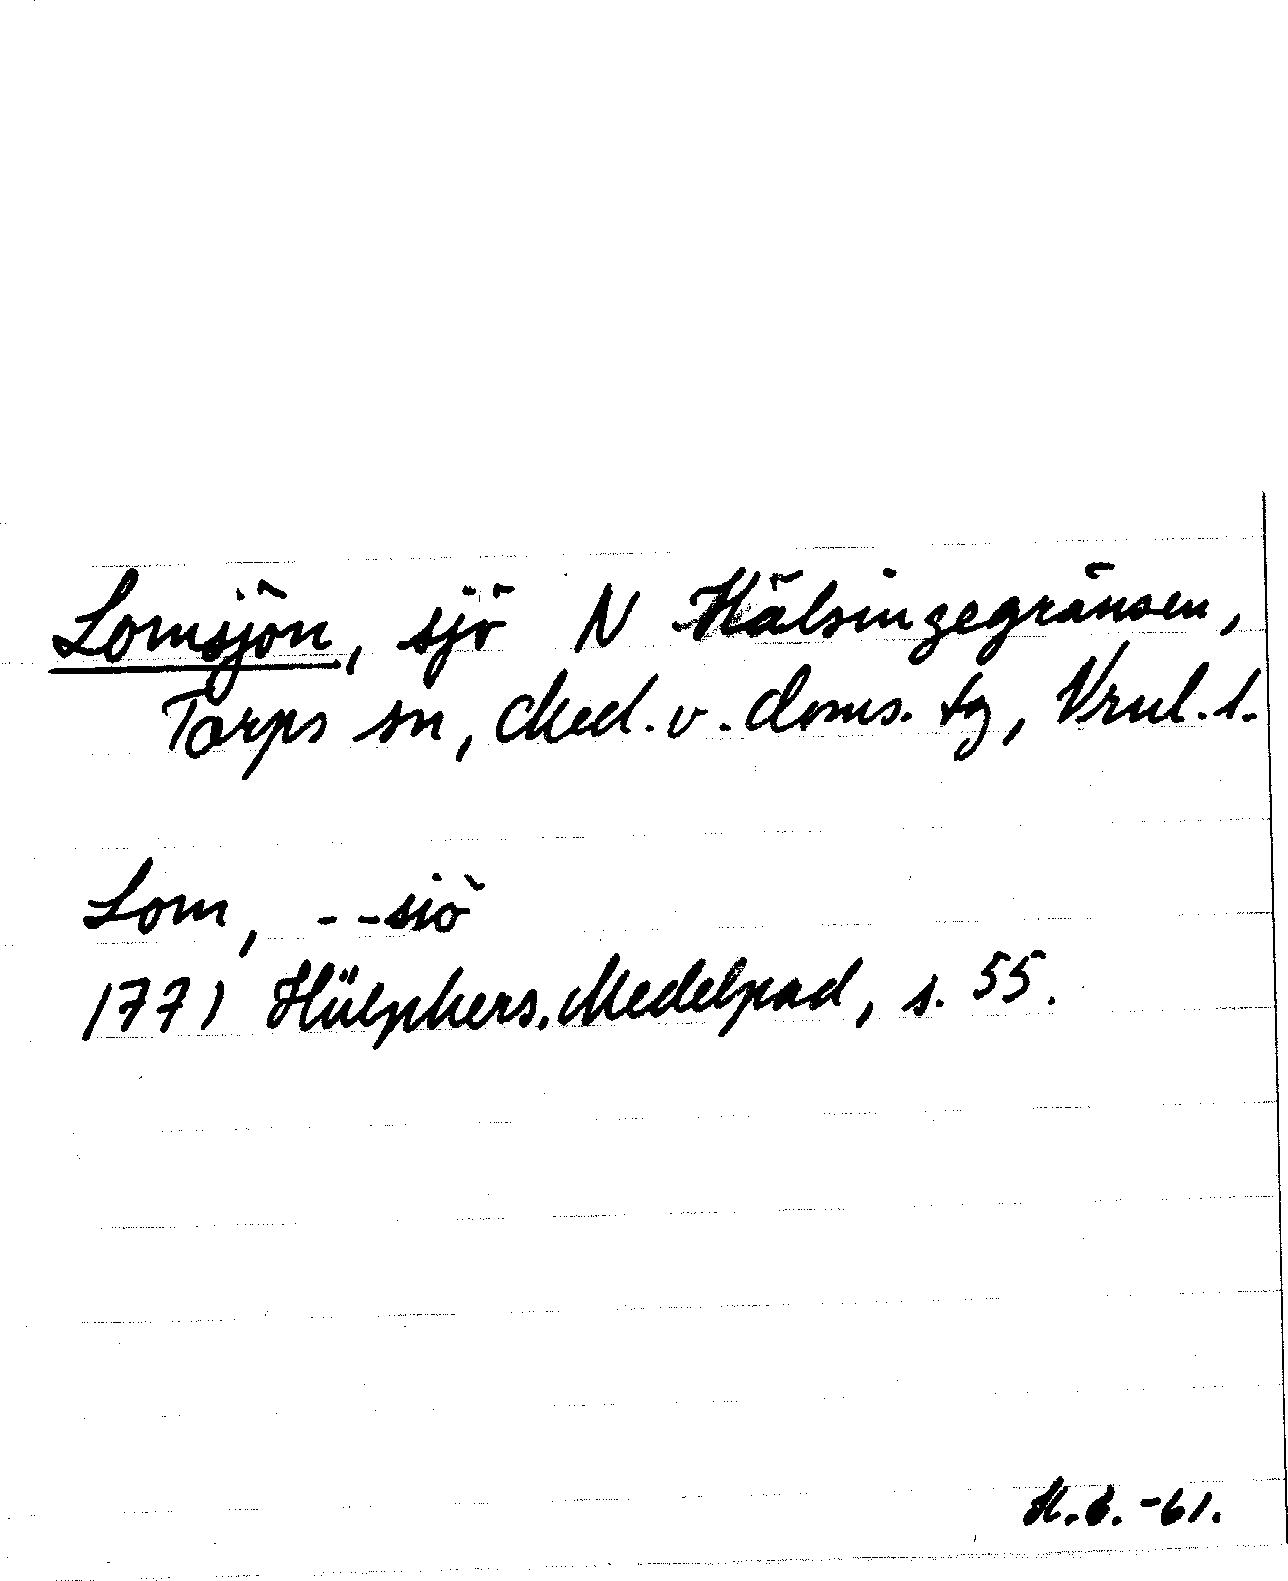 Lomsjön, sjö N Hälsingegränsen,
Torps sn, Med. v. doms. tg, Vrnl. l.
Lom, - -siö
1771 Hülphers. Medelpad, s. 55.
-61.